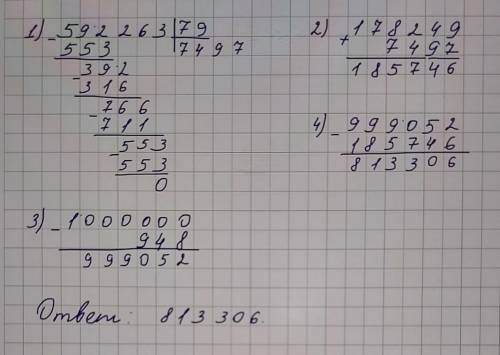 1) - 592263 | 79
553 | 7497
- 392
316
- 766
711
- 553
553
0
2) + 178249
7497
185746
3) - 1000000
948
999052
4) - 999052
185746
813306
Ответ: 813306.